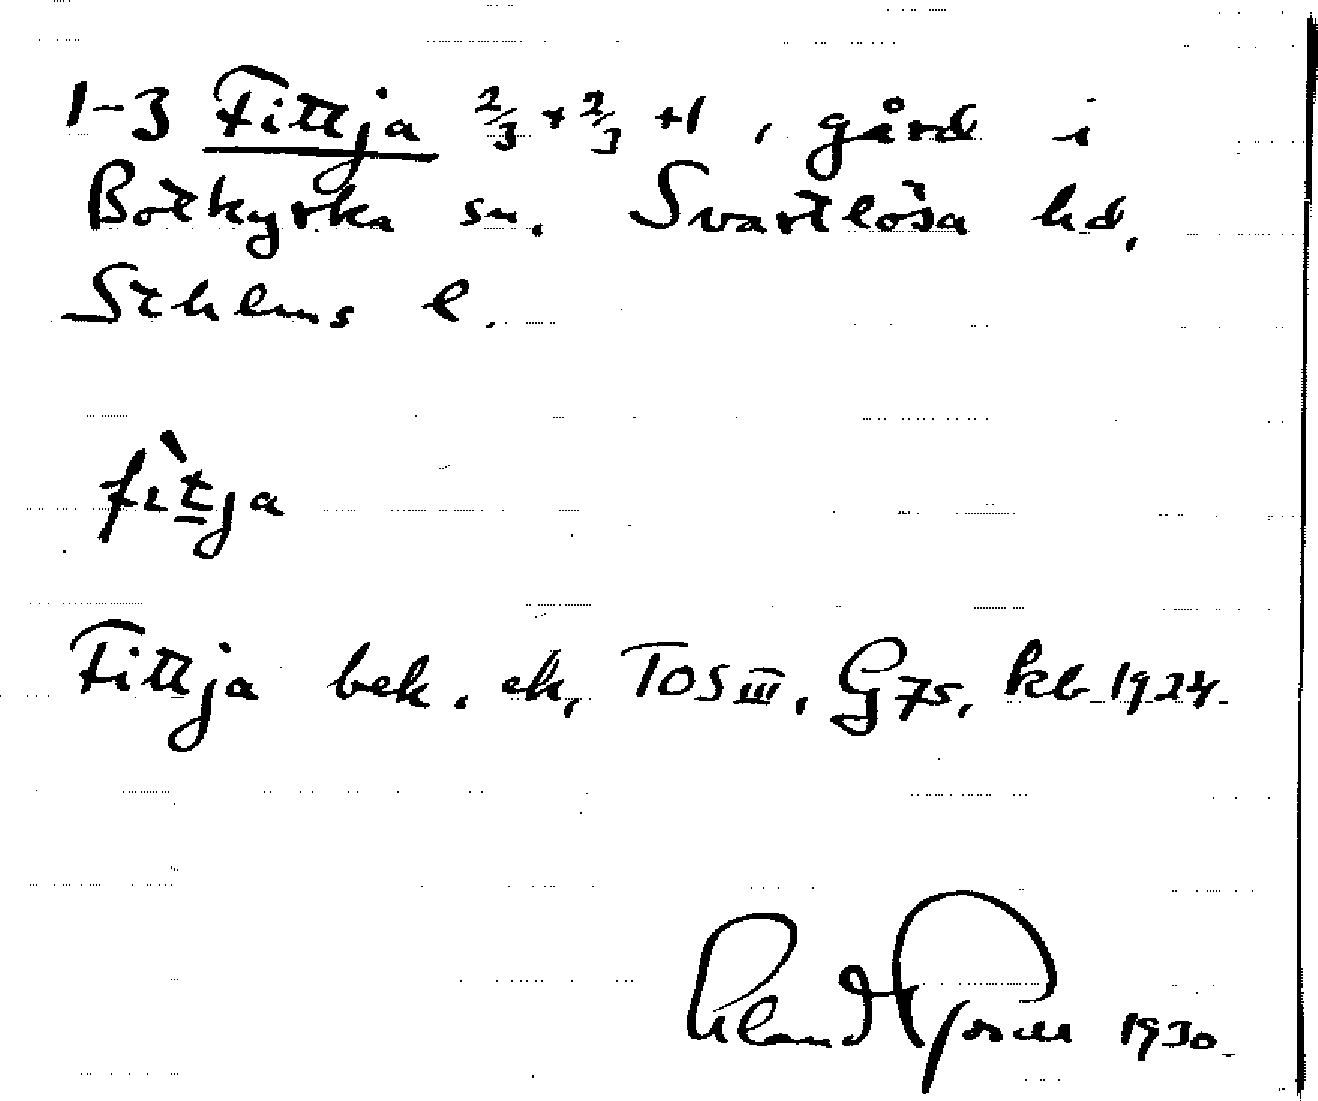 1-3 Fittja 2/3 + 2/3 +1, gård i
Botkyrka sn. Svartlösa hd,
Sthlms l.
fìt̲ja
Fittja bek. ek, TOS III, G 75, kb 1924.
1930.